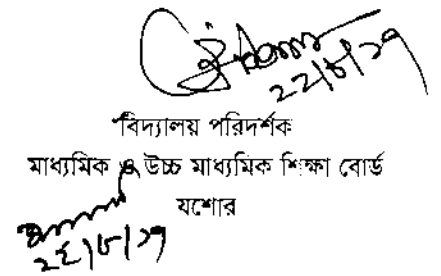 ২২/৮/১৭
বিদ্যালয় পরিদর্শক
মাধ্যমিক ও উচ্চ মাধ্যমিক শিক্ষা বোর্ড
যশোর
২২/৮/১৭